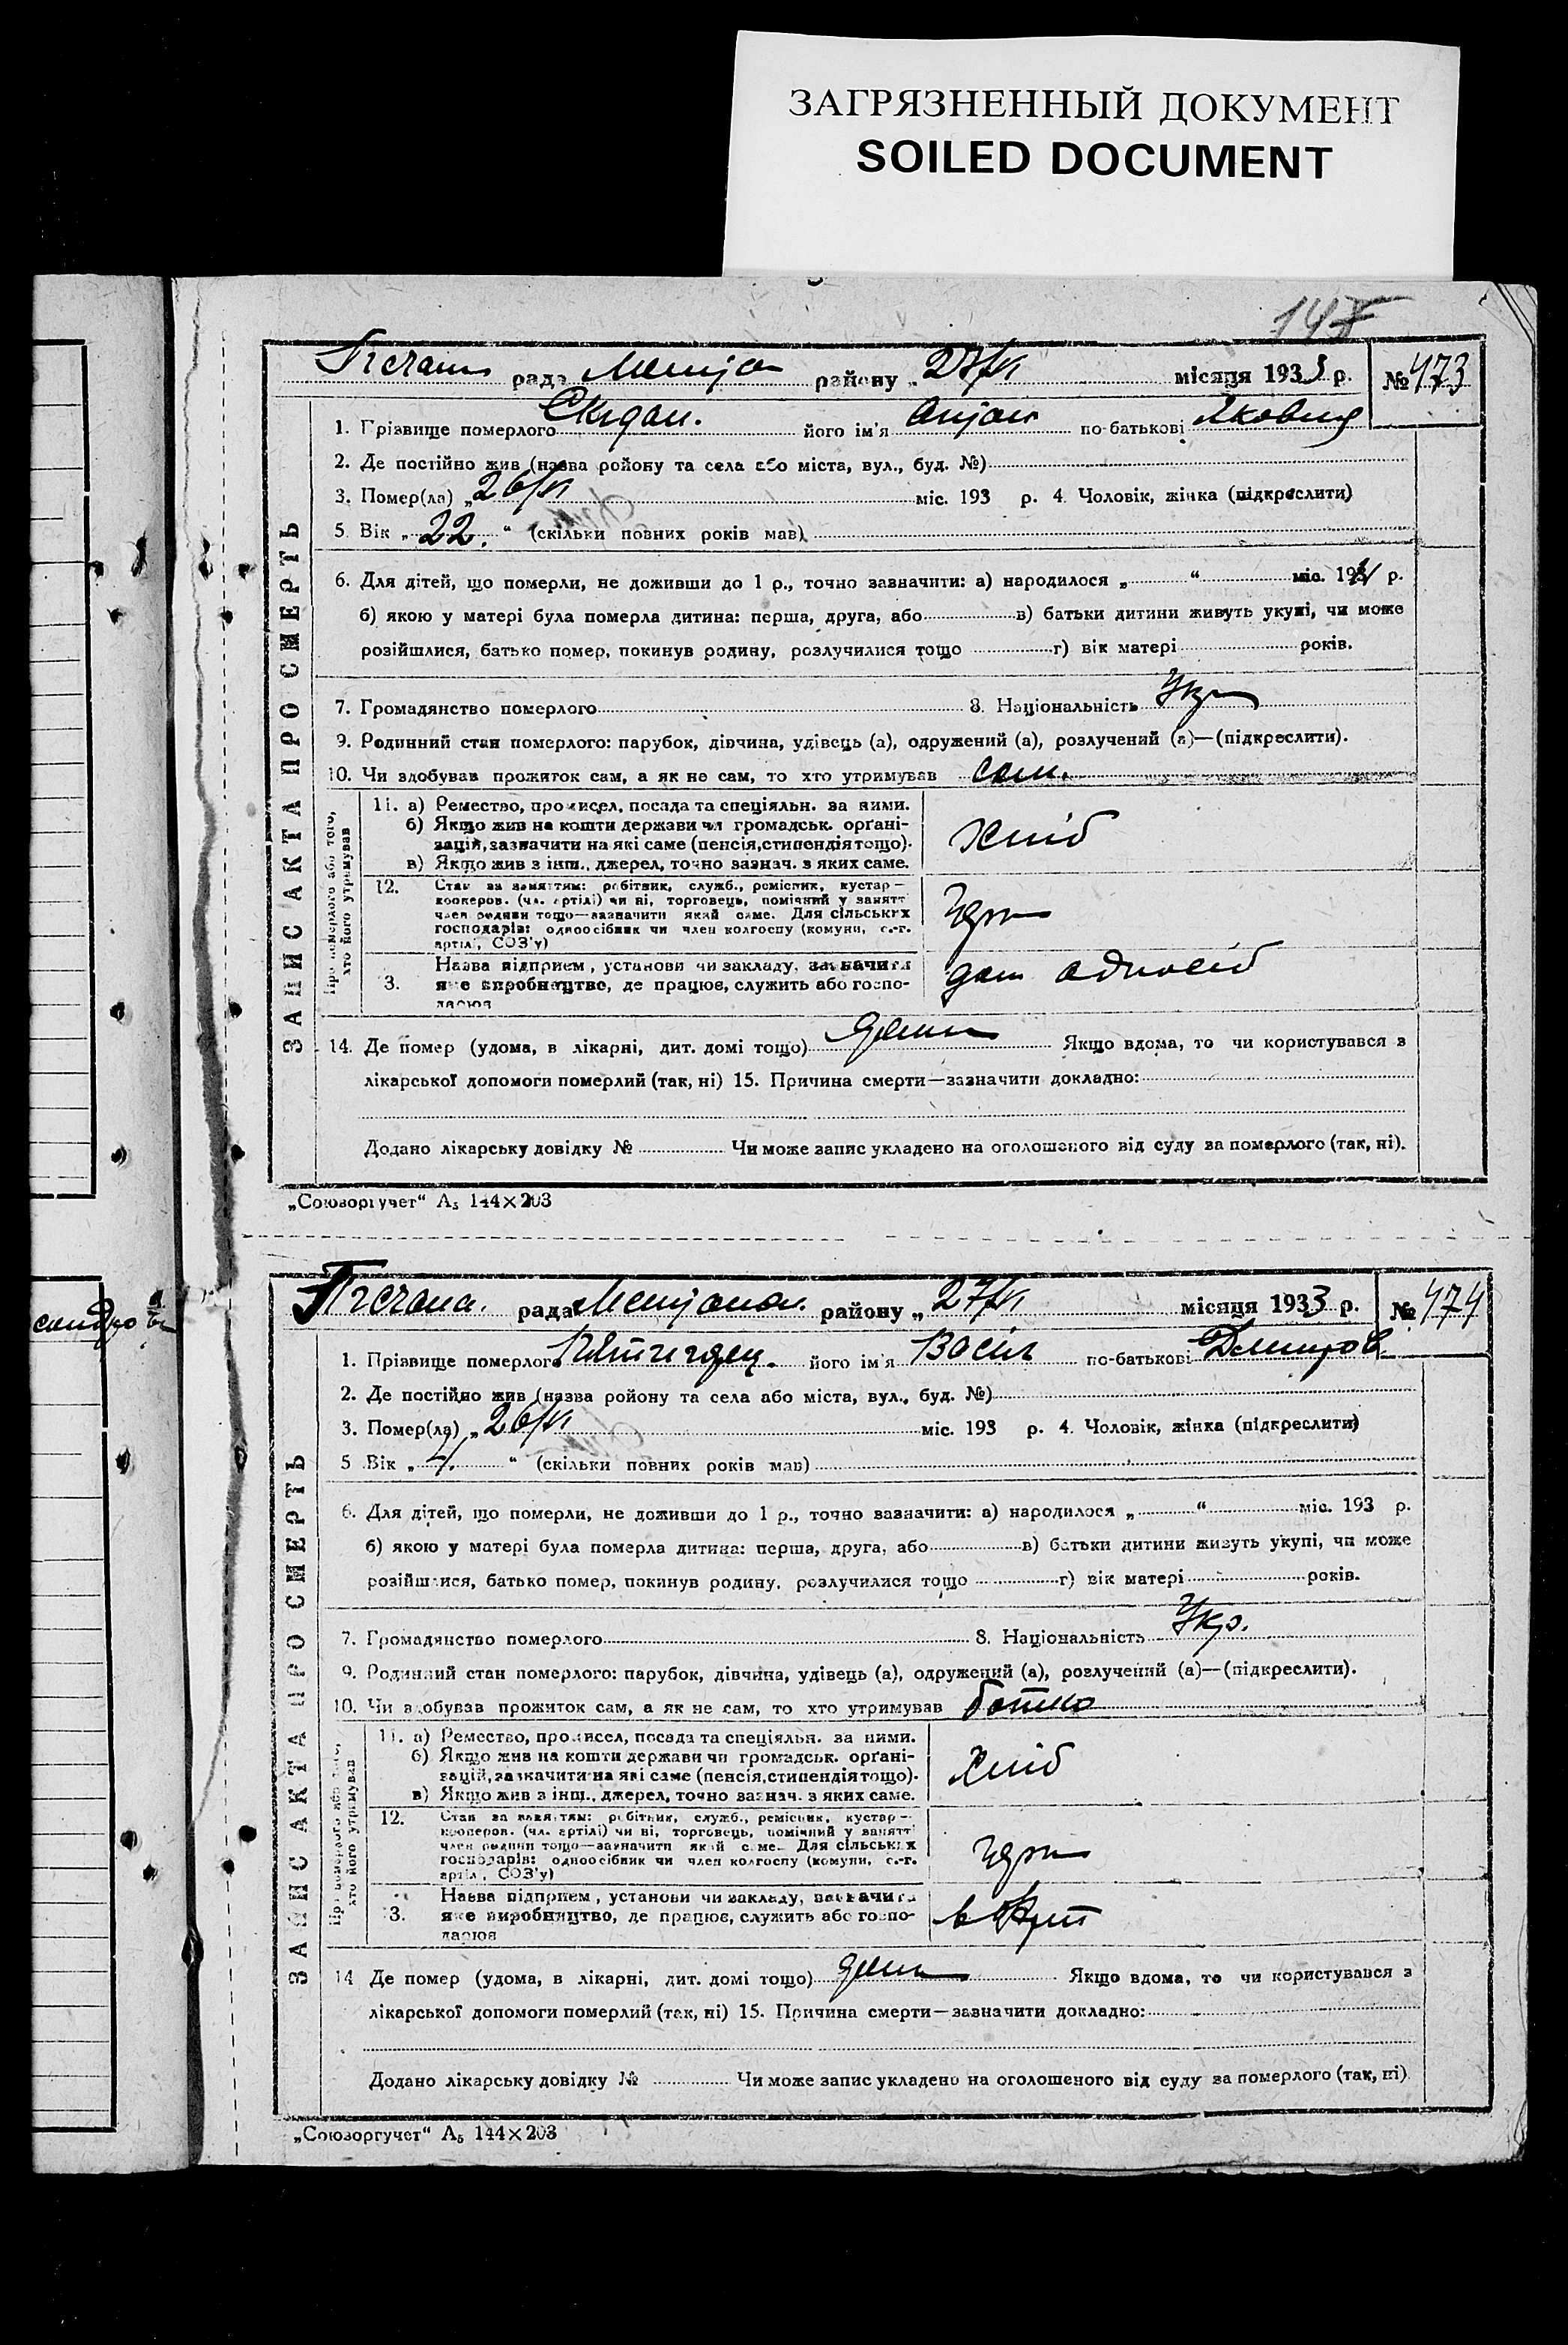 ЗАГРЯЗНЕННЫЙ ДОКУМЕНТ
SOILED DOCUMENT
рада району 27/VI місяця 1933 р. № 473
ЗАПИС АКТА ПРО СМЕРТЬ
1. Прізвище померлого Скидан. його ім'я Антон по-батькові Якович
2. Де постійно жив (назва ройону та села або міста, вул., буд. №)
3. Помер(ла) „ 26/VI міс. 193 р. 4. Чоловік, жінка (підкреслити)
5. Вік „ 22. “ (скільки повних років мав)
6. Для дітей, що померли, не доживши до 1 р., точно зазначити: а) народилося „ “ міс. 193 р.
б) якою у матері була померла дитина: перша, друга, або в) батьки дитини живуть укупі, чи може
розійшлися, батько помер, покинув родину, розлучилися тощо г) вік матері років.
7. Громадянство померлого 8. Національність Укр
9. Родинний стан померлого: парубок, дівчина, удівець (а), одружений (а), розлучений (а)—(підкреслити).
10. Чи здобував прожиток сам, а як не сам, то хто утримував сам.
Про померлого або того, хто його утримував
11. а) Ремество, промисел, посада та спеціяльн. за ними.
б) Якщо жив на кошти держави чи громадськ. орґані-
зацій, зазначити на які саме (пенсія, стипендія тощо).
в) Якщо жив з інш., джерел, точно зазнач. з яких саме.
хліб
12. Стан за заняттям: робітник, служб., ремісник, кустар—
кооперов. (чл. артілі) чи ні, торговець, помічний у занятт
член родини тощо—зазначити який саме. Для сільських
господарів: одноосібник чи член колгоспу (комуни, с.-г.
артілі, СОЗ'у)
3. Назва підприєм, установи чи закладу, зазначити
яке виробництво, де працює, служить або госпо-
дарює
дом одноосіб
14. Де помер (удома, в лікарні, дит. домі тощо) дома Якщо вдома, то чи користувався з
лікарської допомоги померлий (так, ні) 15. Причина смерти—зазначити докладно:
Додано лікарську довідку № Чи може запис укладено на оголошеного від суду за померлого (так, ні).
„Союзоргучет“ А5 144×203
рада району „ 27/VI місяця 1933 р. № 474
ЗАПИС АКТА ПРО СМЕРТЬ
1. Прізвище померлого його ім'я Васіль по-батькові Дмитров
2. Де постійно жив (назва ройону та села або міста, вул., буд. №)
3. Помер(ла) „ 26/VI міс. 193 р. 4. Чоловік, жінка (підкреслити)
5 Вік „ 4. “ (скільки повних років мав)
6. Для дітей, що померли, не доживши до 1 р., точно зазначити: а) народилося „ “ міс. 193 р.
б) якою у матері була померла дитина: перша, друга, або в) батьки дитини живуть укупі, чи може
розійшлися, батько помер, покинув родину, розлучилися тощо г) вік матері років.
7. Громадянство померлого 8. Національність Укр.
9. Родинний стан померлого: парубок, дівчина, удівець (а), одружений (а), розлучений (а)—(підкреслити).
10. Чи здобував прожиток сам, а як не сам, то хто утримував батько
Про померлого або того, хто його утримував
11. а) Ремество, промисел, посада та спеціяльн. за ними.
б) Якщо жив на кошти держави чи громадськ. орґані-
зацій, зазначити на які саме (пенсія, стипендія тощо).
в) Якщо жив з інш., джерел, точно зазнач. з яких саме.
хліб
12. Стан за заняттям: робітник, служб., ремісник, кустар—
кооперов. (чл. артілі) чи ні, торговець, помічний у занятт
член родини тощо—зазначити який саме. Для сільських
господарів: одноосібник чи член колгоспу (комуни, с.-г.
артілі, СОЗ'у)
3. Назва підприєм, установи чи закладу, зазначити
яке виробництво, де працює, служить або госпо-
дарює
14 Де помер (удома, в лікарні, дит. домі тощо) дома Якщо вдома, то чи користувався з
лікарської допомоги померлий (так, ні) 15. Причина смерти—зазначити докладно:
Додано лікарську довідку № Чи може запис укладено на оголошеного від суду за померлого (так, ні)
„Союзоргучет“ А5 144×203